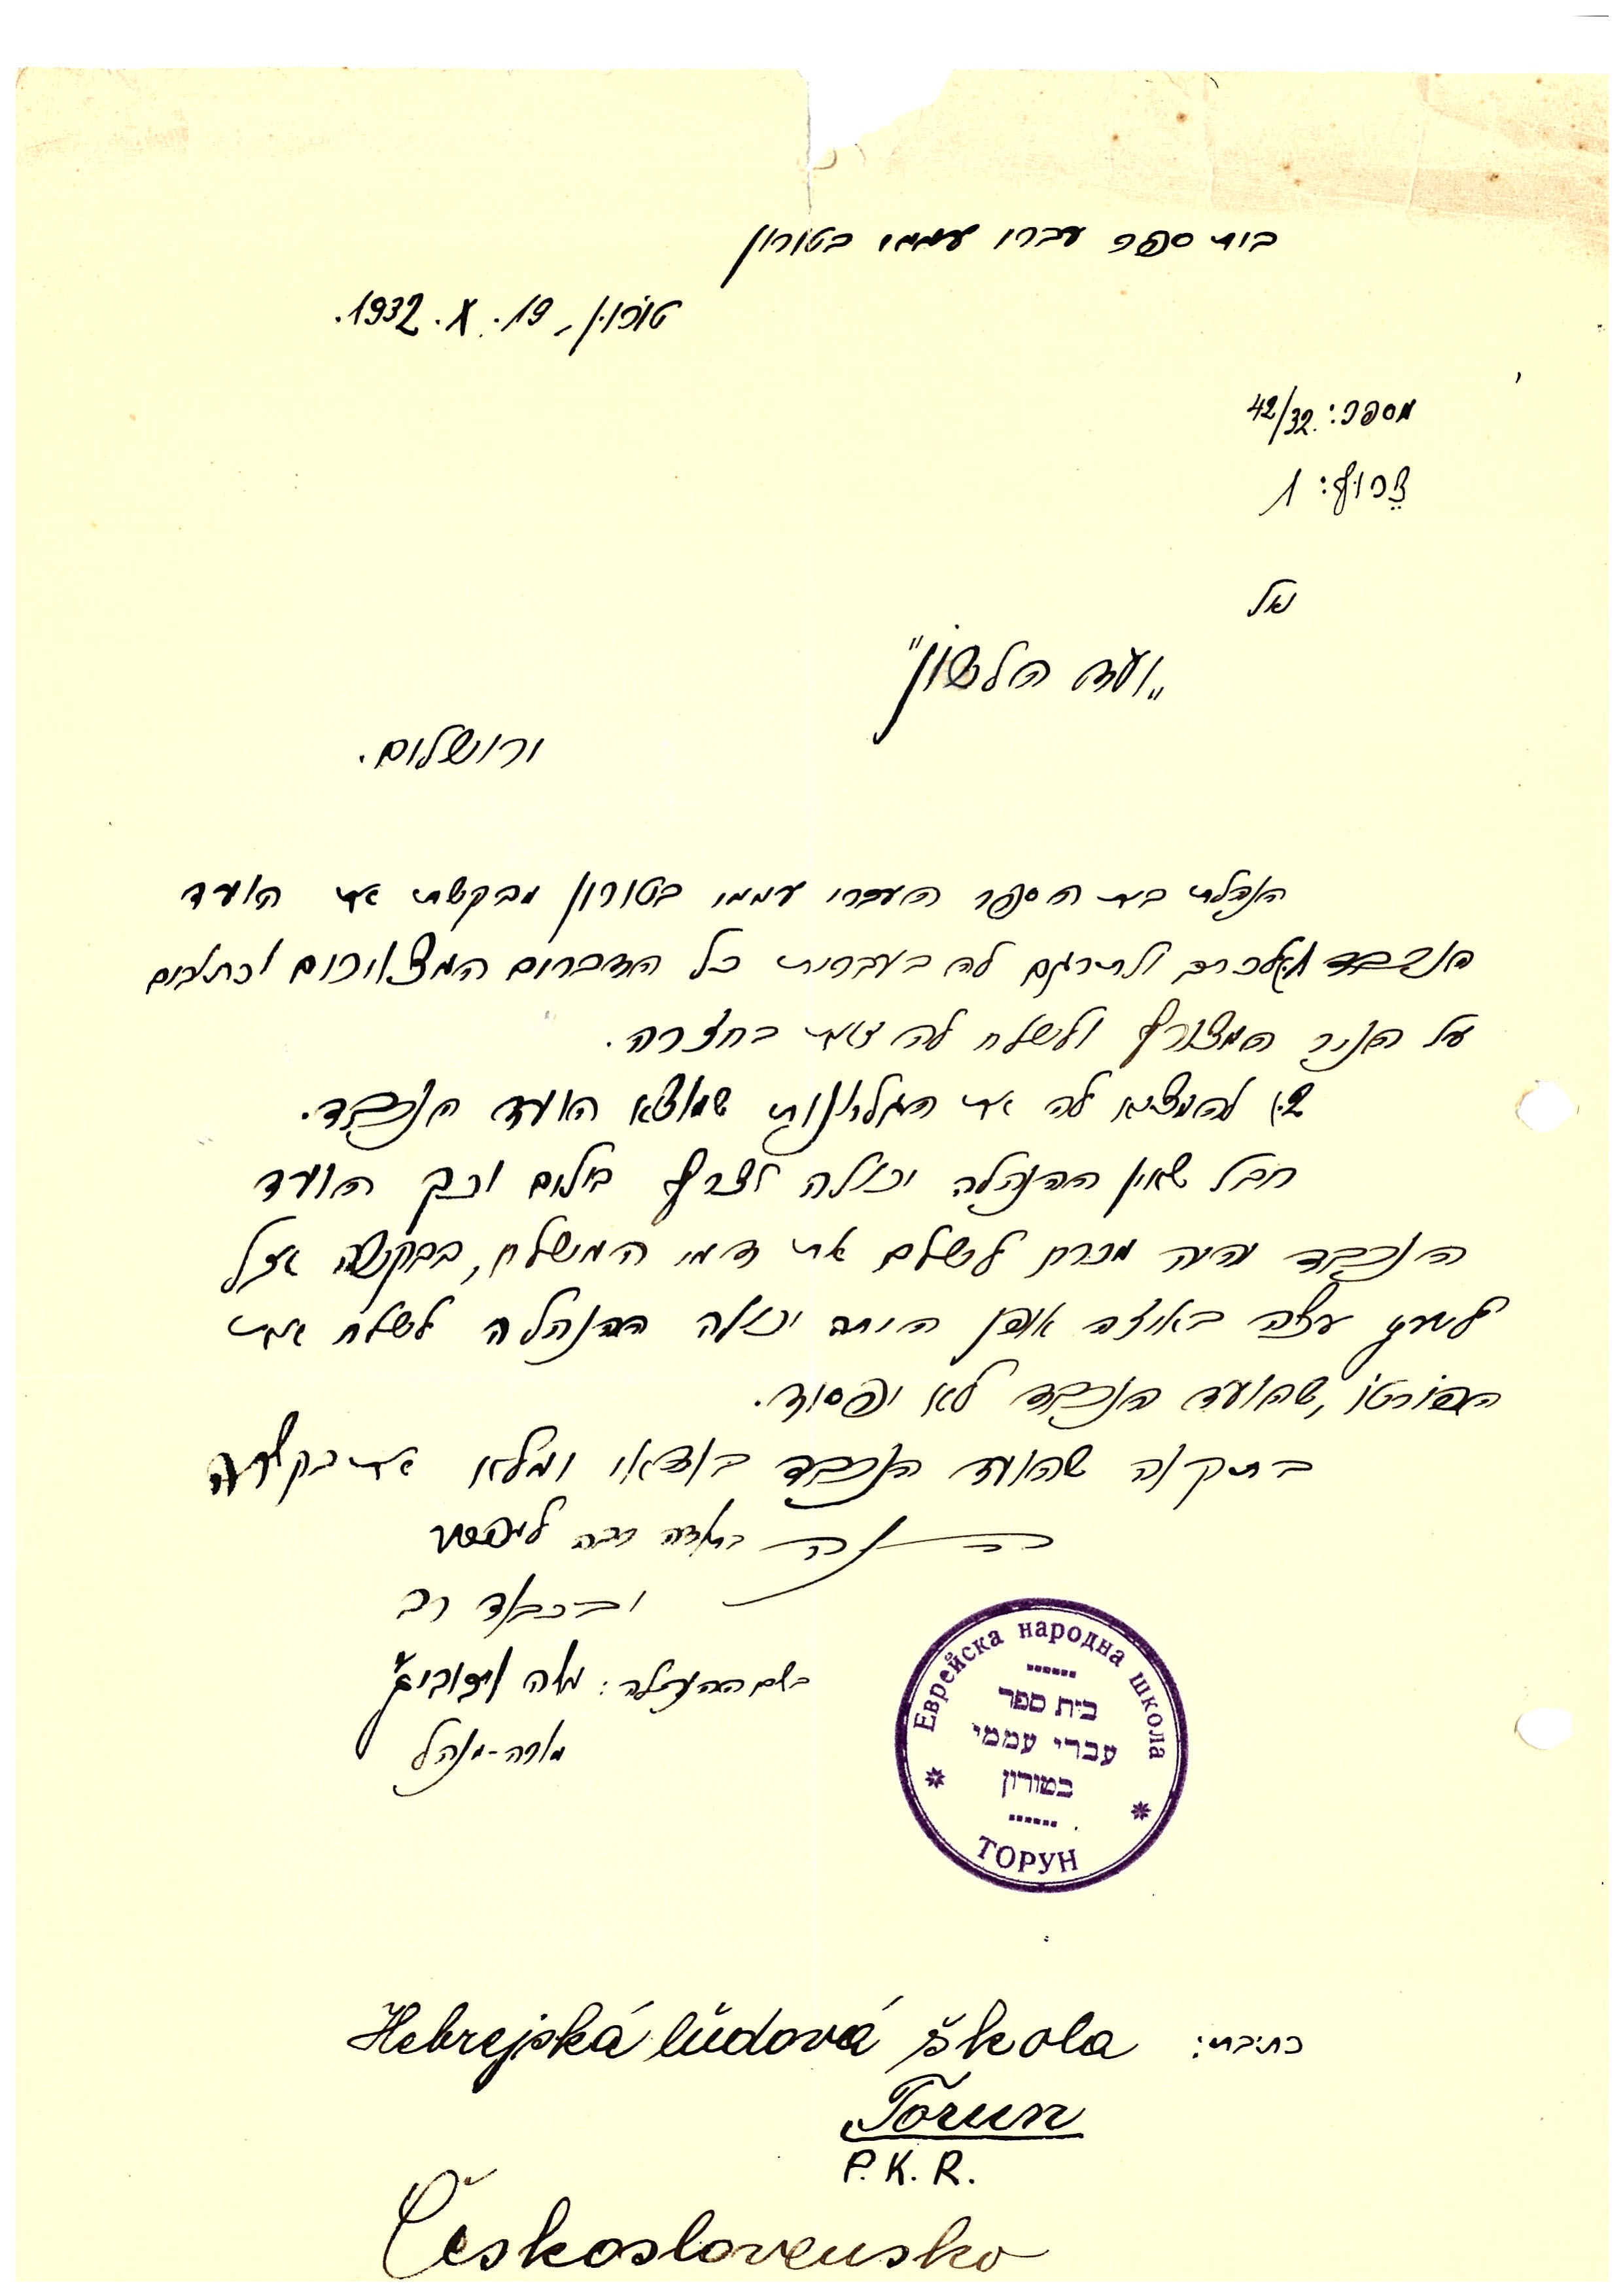 בית ספר עברי עממי בטורון
טורון, 19. X. 1932.
מספר: 42/32.
צרוף: 1
אל
„ועד הלשון"
ירושלים.
הנהלת בית הספר העברי עממי בטורון מבקשת את הועד
הנכבד ולתרגם לה בעברית כל הדברים המצוירים וכתובים
על הניר המצורף ולשלח לה זאת בחזרה.
2.) להמציא לה את הגליונות שמוציא הועד הנכבד.
חבל שאין ההנהלה יכולה לצרף בולים וכך הועד
הנכבד יהיה מכרח לשלם את דמי המשלח, בבקשה אצל
עצה באיזה אופן היתה יכולה ההנהלה לשלח את
הפורטו, שהועד הנכבד לא יפסיד.
בתקוה שהועד הנכבד בודאי ימלא את בקשתה
בתודה רבה למפרע
ובכבוד רב
בשם ההנהלה: משה
מורה-מנהל
Еврейска народна школа
בית ספר
עברי עממי
בטורון
ТОРУН
כתבת: Hebrejská ľudová škola
Torun
P.K.R.
Československo